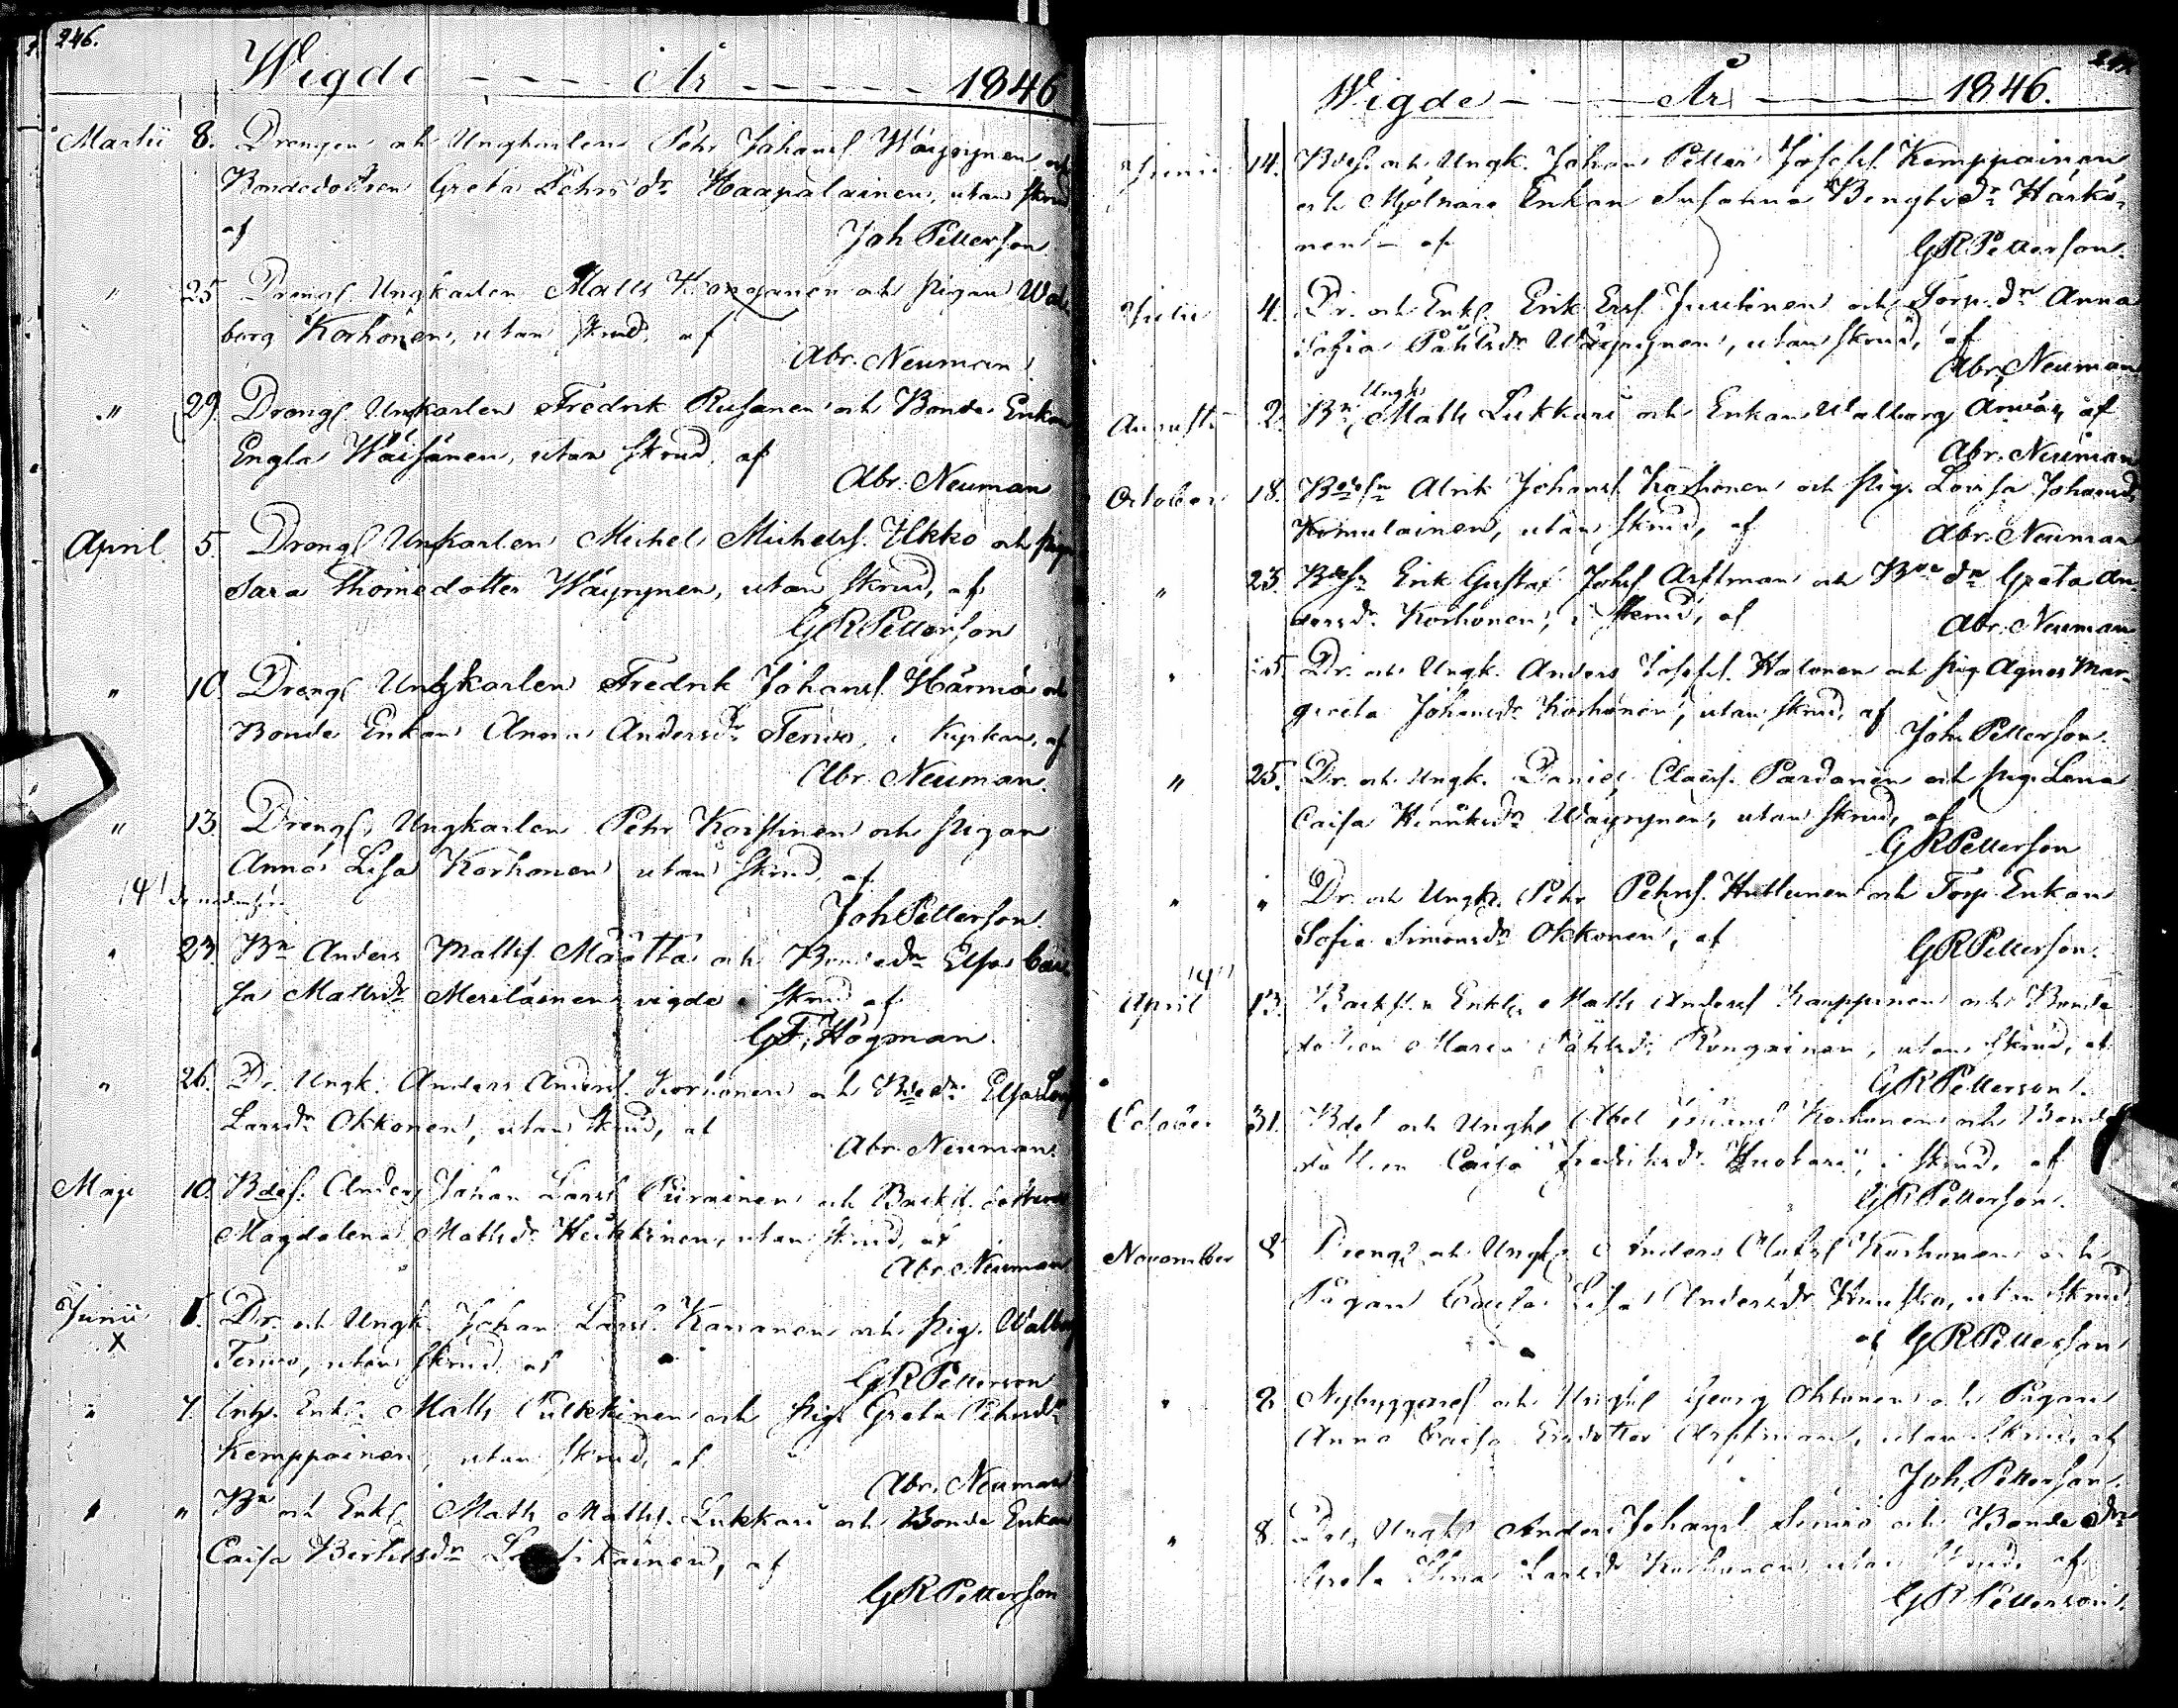 246.
Wigde - - - - År - - - - - 1846
Martii 8. Drengen och Ungkarlen Pehr Johansf. Wäyrynen och
Bondedottren Greta Pehrsdr Haapalainen, utan skrud
af Joh Petterson.
" 25 Drengf. Ungkarlen Matts Konganen och pigan Wal-
borg Korhonen, utan skrud, af
Abr. Neuman
" 29. Drengf. Ungkarlen Fredrik Rusanen och Bonde Enkan
Engla Wäisänen, utan skrud, af
Abr. Neuman
April 5. Drengf Ungkarlen Michel Michelsf. Ukko och pigan
Sara Thomedotter Wäyrynen, utan skrud, af
GRPetterson
" 10. Drengf Ungkarlen Fredrik Johansf. Härmä och
Bonde Enkan Anna Andersdr Tervo, i Kyrkan, af
Abr. Neuman.
" 13 Drengf. Ungkarlen Pehr Karstinen och pigan
Anna Lisa Korhonen utan skrud, af
Joh Petterson.
" 23. Bn Anders Mattsf. Määttä och Bondedn Elsa Cai-
sa Mattsdr Meriläinen vigde i skrud af
GF, Högman.
" 26. Dr. Ungk. Anders Andersf. Korhonen och Bdedn Elsa
Larsdn Okkonen, utan skrud, af
Abr. Neuman.
Maji 10. Bdef. Anders Johan Larsf Piirainen och Backst. dottren
Magdalena Mattsdr Heikkinen, utan skrud, af
Abr. Neuman
Junii 1. Dr. och Ungk. Johan Larsf. Kananen och pig. Walborg
X
Tervo, utan skrud af
GRPetterson
" 7. Enkl. Matts Pulkkinen och pig. Greta Pehrsdr
Kemppainen, utan skrud, af
Abr. Neuman
" " Bn och Enkl. Matts Mattsf. Lukkari och Bonde Enkan
Caisa Bertilsdn af
GRPetterson
Wigde - - - År - - - 1846.
Junii 14. Bdef. och Ungk. Johan Petter Josefsf. Kemppainen
och Mjölnare Enkan Susanna Bengtsdr Härkö-
nen - af GRPetterson.
Julii 4. Dr. och Enkl. Erik Ersf. Juntinen och Torp. dn Anna
Sofia Påhlsdr Wäyrynen, utan skrud, af
Abr. Neuman
Augusti 2. Bn, Ungk. Matts Lukkari och Enkan Walborg af
Abr. Neuman
October 18. Bdesn Alrik Johansf. Korhonen och pig. Lovisa Johansdr
Komulainen, utan skrud, af
Abr. Neuman
" 25. Bdesn Erik Gustaf Johsf Arftman och Bde dn Greta An-
dersdr. Korhonen, i skrud, af
Abr. Neuman
" 25. Dr. och Ungk. Anders Josefsf. Halonen och pig Agnes Mar-
greta Johansdr Korhonen, utan skrud, af
Joh. Petterson.
" 25. Dr. och Ungk. Daniel Claesf. Pardanen och pig. Lena
Caisa Henriksdr Wäyrynen, utan skrud, af
GRPetterson
" " Dr. och Ungk. Pehr Pehrsf. Huttunen och Torp Enkan
Sofia Simonsdr Okkonen, af
GRPetterson.
April 13. Backst. Enkl. Matts Andersf Karppinen och Bonde
dottren Maria Påhlsdr Rongainen, utan skrud, af
GRPetterson.
October 31. Bdef och Ungk. Abel Korhonen och Bonde
dottren Caisa Fredriksdr Huotari, i skrud, af
GRPetterson.
November 8 Drengf och Ungk. Anders Olofsf Korhonen och
Pigan Caisa Lisa Andersdr utan skrud
af GRPetterson
" 2 Nybyggaref och Ungkl Georg Ohtonen och Pigan
Anna Caisa Ersdotter Arftman, utan skrud, af
Joh. Petterson.
" 8. Ungk. Anders Johansf och Bonde dn
Greta Stina Larsdr Korhonen utan skrud, af
GRPetterson.